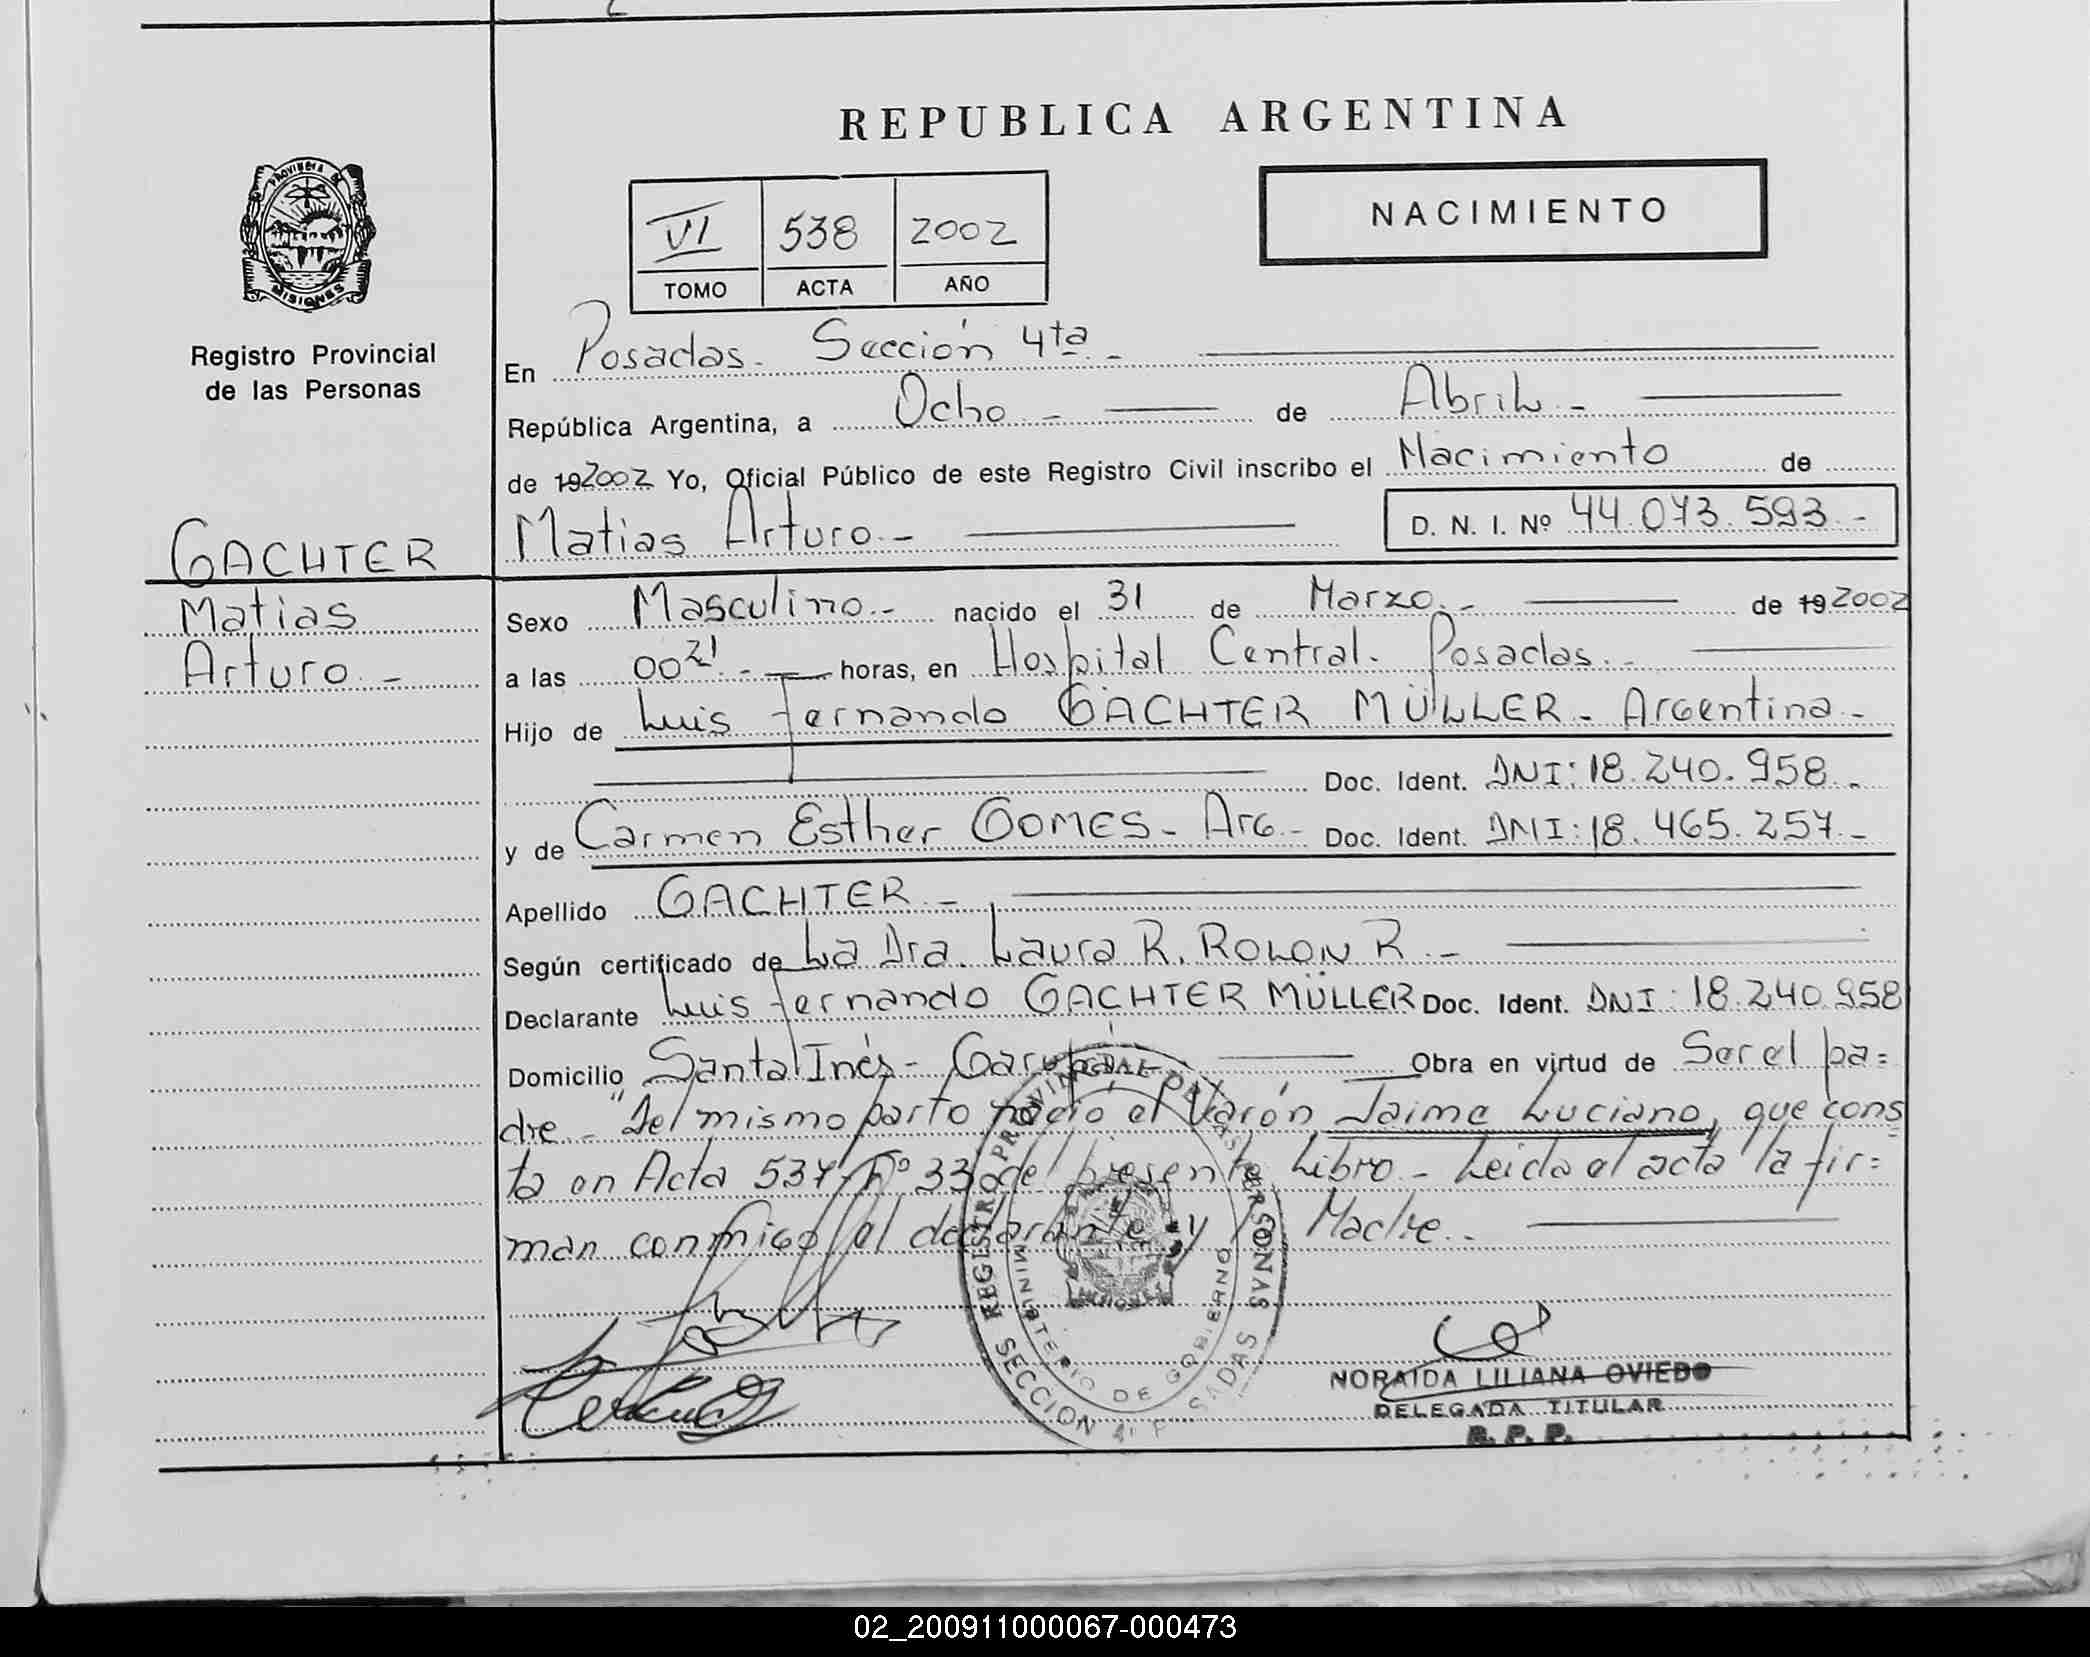 REPUBLICA ARGENTINA
PROVINCIA DE
MISIONES
Registro Provincial
de las Personas
VI 538 2002
TOMO ACTA AÑO
NACIMIENTO
En Posadas. Sección 4ta.-
República Argentina, a Ocho.- de Abril.-
de 192002 Yo, Oficial Público de este Registro Civil inscribo el Nacimiento de
Matias Arturo.- D. N. I. Nº 44.073.593.-
GACHTER
Matias
Arturo.-
Sexo Masculino.- nacido el 31 de Marzo.- de 192002
a las 00 21.- horas, en Hospital Central. Posadas.-
Hijo de Luis Fernando GÄCHTER MÜLLER- Argentina-
Doc. Ident. DNI: 18.240.958.-
y de Carmen Esther GOMES- Arg.- Doc. Ident. DNI: 18.465.257.-
Apellido GACHTER.-
Según certificado de La Dra. Laura R. ROLON R.-
Declarante Luis Fernando GACHTER MÜLLER Doc. Ident. DNI: 18.240.958
Domicilio Santa Inés- Garupá- Obra en virtud de Ser el pa=
dre.- "Del mismo parto nació el Varón Jaime Luciano, que cons
ta en Acta 537 Fº 33 del presente Libro- Leida el acta la fir=
man conmigo el declarante y la Madre.-
REGISTRO PROVINCIAL DE LAS PERSONAS
MINISTERIO DE GOBIERNO
SECCION 4ª POSADAS
NORAIDA LILIANA OVIEDO
DELEGADA TITULAR
R. P. P.
02_200911000067-000473